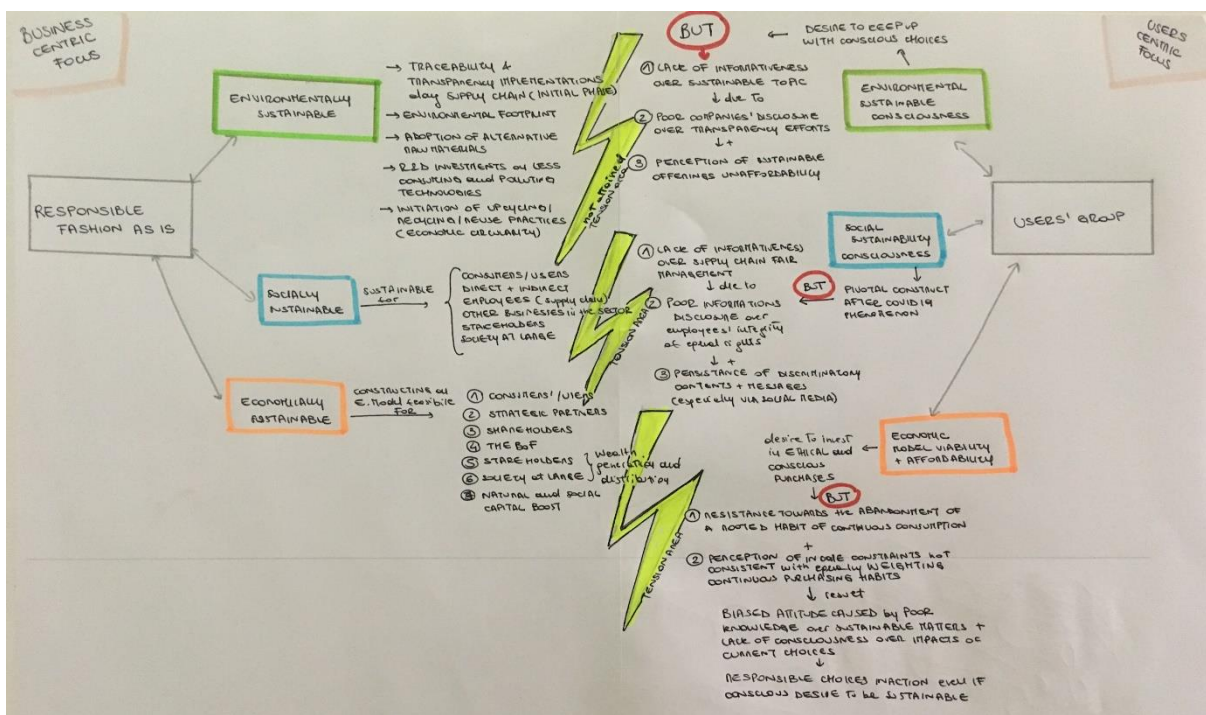 BUSINESS
CENTRIC
FOCUS
RESPONSIBLE
FASHION AS IS
ENVIRONMENTALLY
SUSTAINABLE
→ TRACEABILITY &
TRANSPARENCY IMPLEMENTATIONS
along SUPPLY CHAIN (INITIAL PHASE)
→ ENVIRONMENTAL FOOTPRINT
→ ADOPTION OF ALTERNATIVE
RAW MATERIALS
→ R&D INVESTMENTS on LESS
CONSUMING and POLLUTING
TECHNOLOGIES
→ INITIATION OF UPCYCLING/
RECYCLING/REUSE PRACTICES
(ECONOMIC CIRCULARITY)
SOCIALLY
SUSTAINABLE
SUSTAINABLE
for
CONSUMERS/USERS
DIRECT + INDIRECT
EMPLOYEES (supply chain)
OTHER BUSINESSES in the SECTOR
STAKEHOLDERS
SOCIETY AT LARGE
ECONOMICALLY
SUSTAINABLE
CONSTRUCTING an
E. Model feasibile
FOR
① CONSUMERS'/USERS
② STRATEGIC PARTNERS
③ SHAREHOLDERS
④ THE BoF
⑤ STAKEHOLDERS
⑥ SOCIETY AT LARGE
wealth
generation and
distribution
NATURAL and SOCIAL
CAPITAL BOOST
not attained
TENSION AREA
TENSION AREA
TENSION AREA
USERS
CENTRIC
FOCUS
USERS' GROUP
ENVIRONMENTAL
SUSTAINABLE
CONSCIOUSNESS
DESIRE TO KEEP UP
WITH CONSCIOUS CHOICES
BUT
① LACK OF INFORMATIVENESS
OVER SUSTAINABLE TOPIC
↓ due to
② POOR COMPANIES' DISCLOSURE
OVER TRANSPARENCY EFFORTS
↓ +
③ PERCEPTION OF SUSTAINABLE
OFFERINGS UNAFFORDABILITY
SOCIAL
SUSTAINABILITY
CONSCIOUSNESS
PIVOTAL CONSTRUCT
AFTER COVID19
PHENOMENON
BUT
① LACK OF INFORMATIVENESS
OVER SUPPLY CHAIN FAIR
MANAGEMENT
↓ due to
② POOR INFORMATIONS
DISCLOSURE over
employees' integrity
of equal rights
↓ +
③ PERSISTANCE OF DISCRIMINATORY
CONTENTS + MESSAGES
(especially VIA SOCIAL MEDIA)
ECONOMIC
MODEL VIABILITY
+ AFFORDABILITY
desire to invest
in ETHICAL and
CONSCIOUS
PURCHASES
BUT
① RESISTANCE TOWARDS the ABANDONMENT OF
A ROOTED HABIT OF CONTINUOUS CONSUMPTION
+
② PERCEPTION OF INCOME CONSTRAINTS not
CONSISTENT with equally WEIGHTING
CONTINUOUS PURCHASING HABITS
↓ result
BIASED ATTITUDE CAUSED by POOR
KNOWLEDGE over SUSTAINABLE MATTERS +
LACK OF CONSCIOUSNESS OVER IMPACTS OF
CURRENT CHOICES
↓
RESPONSIBLE CHOICES INACTION even IF
CONSCIOUS DESIRE TO be SUSTAINABLE